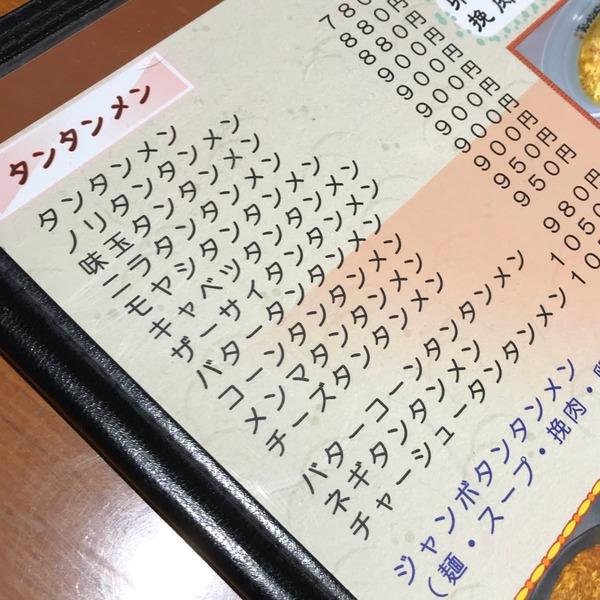 卵
挽肉
タンタンメン
タンタンメン 780
ノリタンタンメン 880円
味玉タンタンメン 880円
ニラタンタンメン 900円
モヤシタンタンメン 900円
キャベツタンタンメン 900円
ザーサイタンタンメン 900円
バタータンタンメン 900円
コーンタンタンメン 900円
メンマタンタンメン 950円
チーズタンタンメン 950円
バターコーンタンタンメン 980円
ネギタンタンメン 1050
チャーシュータンタンメン 10
ジャンボタンタンメン
(麺・スープ・挽肉・